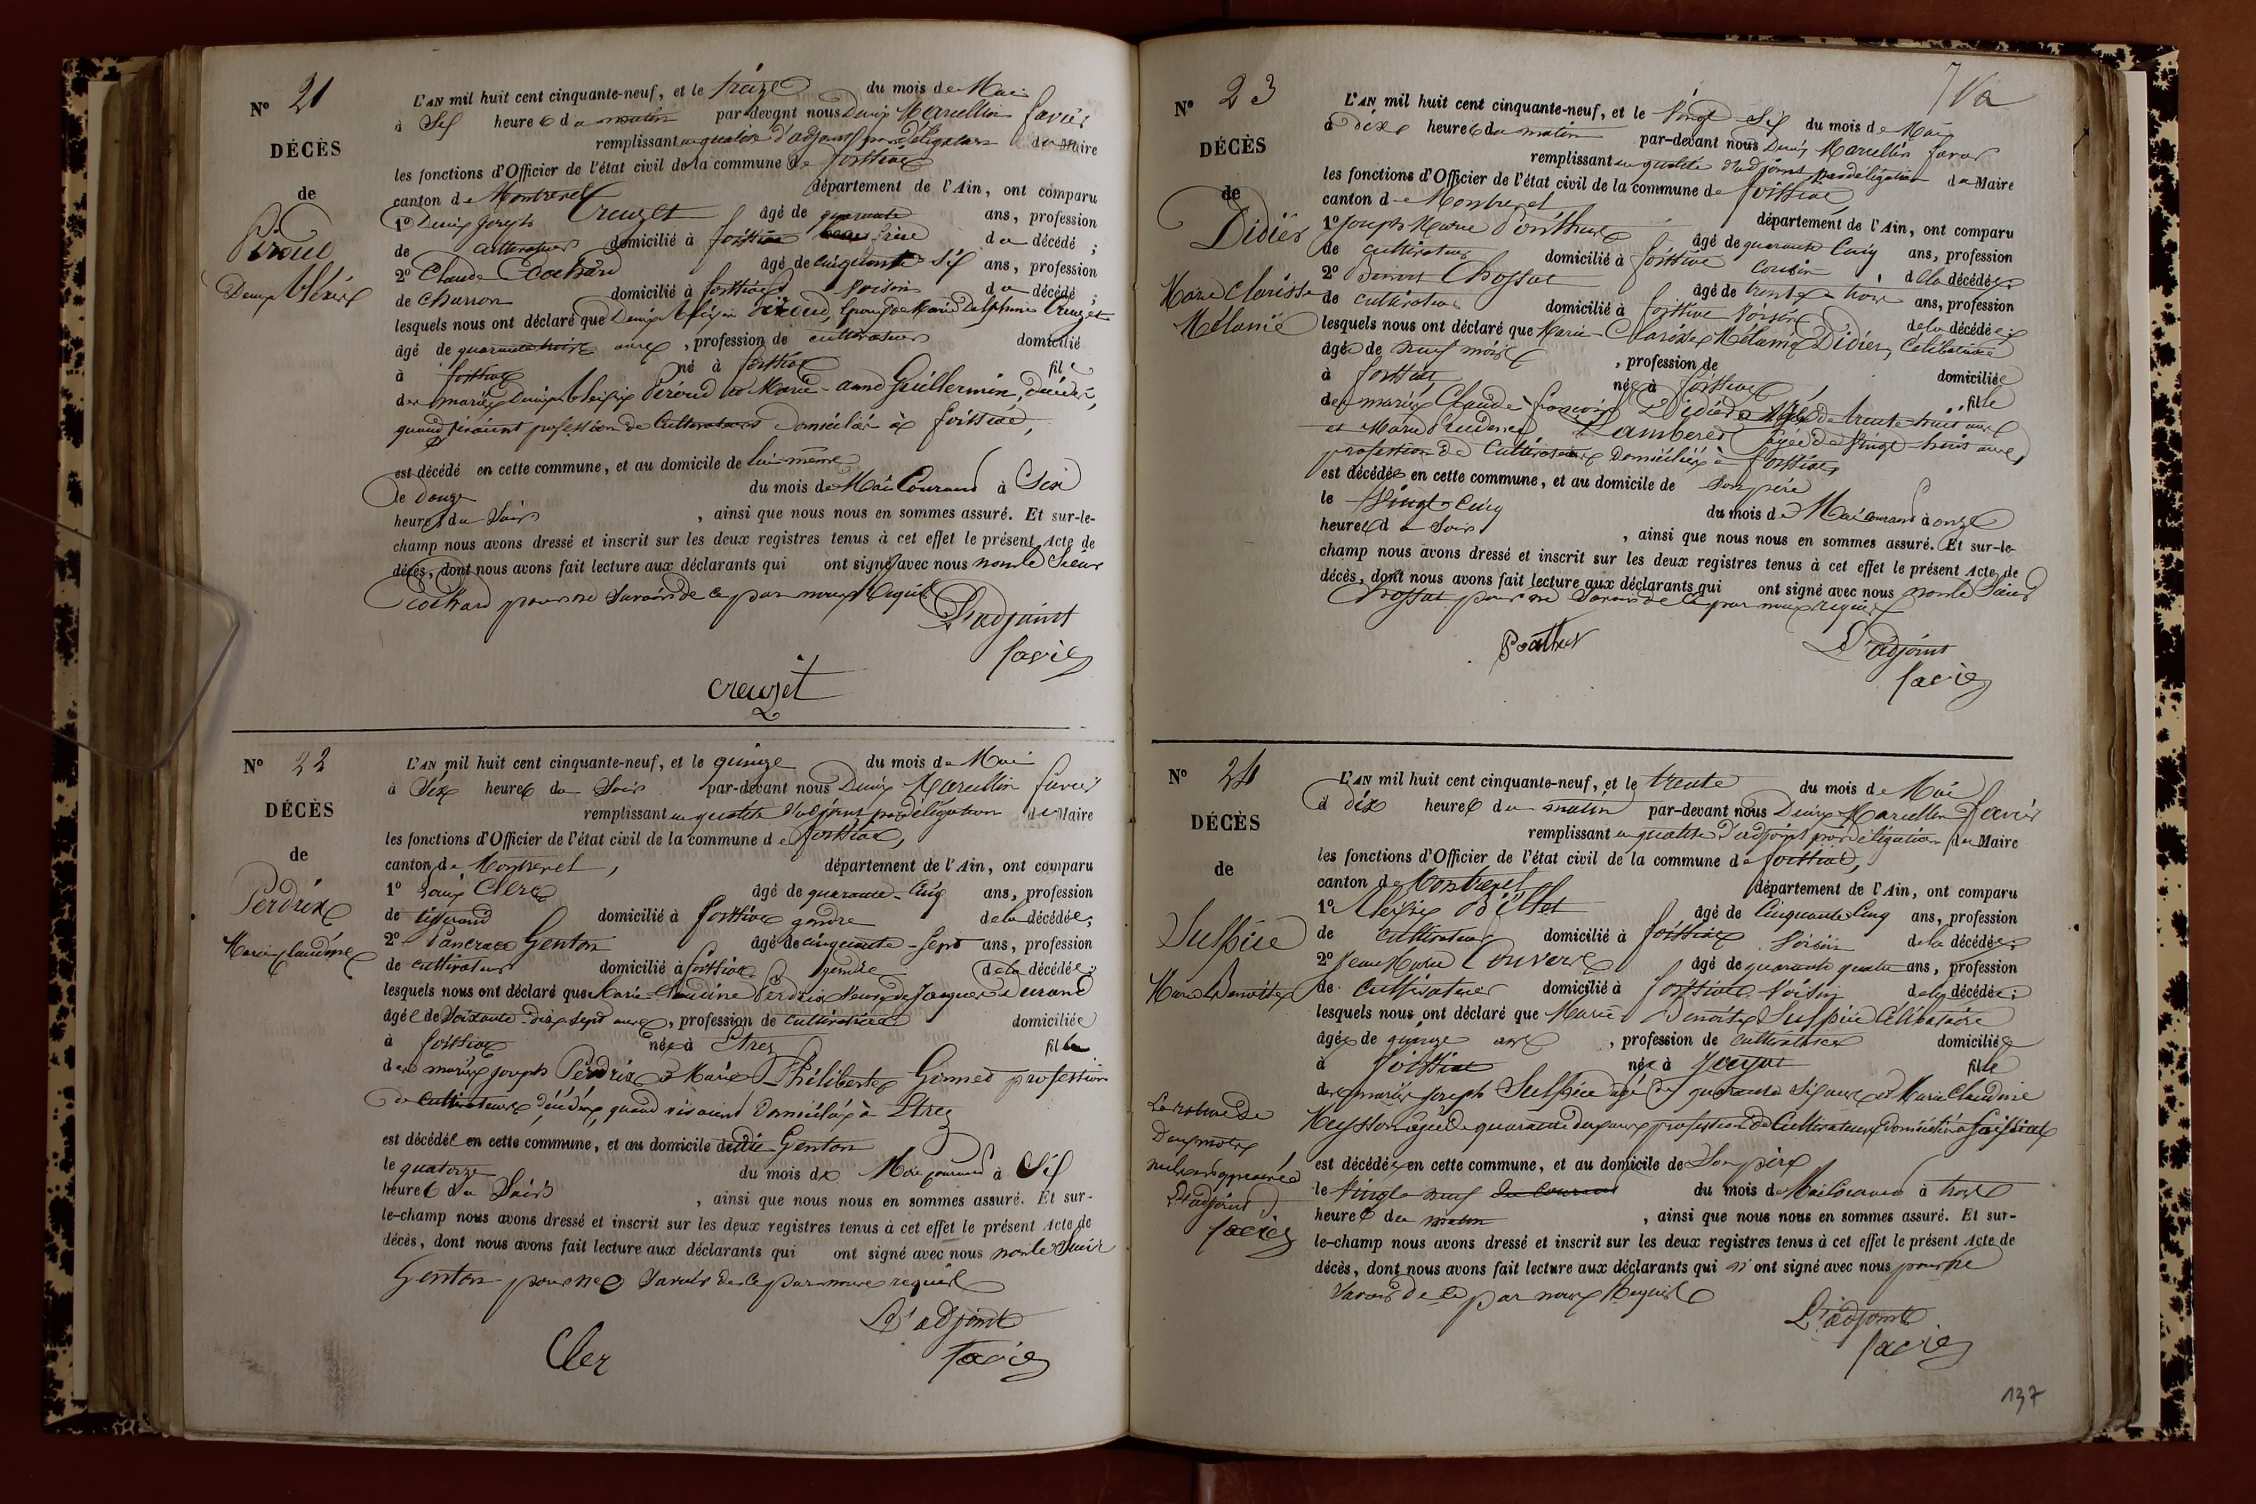 N° 21
DÉCÈS
de
Piroud
Denis Alexis
L'AN mil huit cent cinquante-neuf, et le treize du mois de Mai
à Six heures du matin par-devant nous Denis Marcellin favier
remplissant en qualité d'adjoint par délégation du Maire
les fonctions d'Officier de l'état civil de la commune de foissiat
canton de Montrevel département de l'Ain, ont comparu
1° Denis Joseph Creuzet âgé de quarante ans, profession
de cultivateur domicilié à foissiat beau frère du décédé ;
2° Claude Cochard âgé de cinquante six ans, profession
de Charron domicilié à foissiat voisin du décédé ;
lesquels nous ont déclaré que Denis Alexis Piroud, époux de Marie Delphine Creuzet
âgé de quarante trois ans, profession de cultivateur domicilié
à foissiat né à foissiat fils
des mariés Denis Alexis Piroud et Marie-anne Guillermin, décédés,
quand vivaient profession de Cultivateurs domiciliés à foissiat,
est décédé en cette commune, et au domicile de lui même
le douze du mois de Mai Courant à Six
heures du Soir, ainsi que nous nous en sommes assuré. Et sur-le-
champ nous avons dressé et inscrit sur les deux registres tenus à cet effet le présent Acte de
décès, dont nous avons fait lecture aux déclarants qui ont signé avec nous non le Sieur
Cochard pour ne Savoir de ce par nous Requis
L'adjoint
favier
creuzet
N° 22
DÉCÈS
de
Perdrix
Marie Claudine
L'AN mil huit cent cinquante-neuf, et le quinze du mois de Mai
à Six heures du Soir par-devant nous Denis Marcellin favier
remplissant en qualité d'adjoint par délégation du Maire
les fonctions d'Officier de l'état civil de la commune de foissiat,
canton de Montrevel, département de l'Ain, ont comparu
1° Louis Clerc âgé de quarante-Cinq ans, profession
de tisserand domicilié à foissiat gendre de la décédée ;
2° Pancrace Genton âgé de cinquante-Sept ans, profession
de cultivateur domicilié à foissiat gendre de la décédée ;
lesquels nous ont déclaré que Marie Claudine Perdrix Veuve de Jacques Durand
âgée de Soixante-dix Sept ans, profession de cultivatrice domiciliée
à foissiat née à Etrez fille
des mariés Joseph Perdrix et Marie Philiberte profession
de Cultivateurs décédés, quand vivaient domiciliés à Etrez
est décédée en cette commune, et au domicile dudit Genton
le quatorze du mois de Mai courant à Six
heures du Soir, ainsi que nous nous en sommes assuré. Et sur-
le-champ nous avons dressé et inscrit sur les deux registres tenus à cet effet le présent Acte de
décès, dont nous avons fait lecture aux déclarants qui ont signé avec nous non le Sieur
Genton pour ne Savoir de ce par nous requis
L'adjoint
favier
Cler
N° 23
DÉCÈS
de
Didier
Marie Clarisse
Mélanie
L'AN mil huit cent cinquante-neuf, et le Vingt Six du mois de Mai
à dix heures du matin par-devant nous Denis Marcellin favier
remplissant en qualité d'adjoint par délégation du Maire
les fonctions d'Officier de l'état civil de la commune de foissiat
canton de Montrevel département de l'Ain, ont comparu
1° Joseph Marie Ponthus âgé de quarante Cinq ans, profession
de cultivateur domicilié à foissiat cousin de la décédée ;
2° Benoit Chossat âgé de trente trois ans, profession
de cultivateur domicilié à foissiat Voisin de la décédée ;
lesquels nous ont déclaré que Marie-Clarisse Mélanie Didier, Célibataire
âgée de neuf mois, profession de domiciliée
à foissiat née à foissiat fille
des mariés Claude françois Didier Agé de trente huit ans
et Marie Prudence Lamberet Agée de vingt-trois ans,
profession de Cultivateurs Domiciliés à foissiat
est décédée en cette commune, et au domicile de Son père
le Vingt Cinq du mois de Mai courant à onze
heures du Soir, ainsi que nous nous en sommes assuré. Et sur-le-
champ nous avons dressé et inscrit sur les deux registres tenus à cet effet le présent Acte de
décès, dont nous avons fait lecture aux déclarants qui ont signé avec nous non le Sieur
Chossat pour ne Savoir de ce par nous requis
Ponthus
L'adjoint
favier
N° 24
DÉCÈS
de
Sulpice
Marie Benoite
L'AN mil huit cent cinquante-neuf, et le trente du mois de Mai
à dix heures du matin par-devant nous Denis Marcellin favier
remplissant en qualité d'adjoint par délégation du Maire
les fonctions d'Officier de l'état civil de la commune de foissiat,
canton de Montrevel département de l'Ain, ont comparu
1° Alexis Billet âgé de Cinquante Cinq ans, profession
de cultivateur domicilié à foissiat Voisin de la décédée ;
2° Jean Marie Convert âgé de quarante quatre ans, profession
de Cultivateur domicilié à foissiat Voisin de la décédée ;
lesquels nous ont déclaré que Marie Benoite Sulpice Célibataire
âgée de quinze ans, profession de cultivatrice domiciliée
à foissiat née à Jayat fille
des mariés Joseph Sulpice agé de quarante Six ans et Marie Claudine
agée de quarante deux ans profession de Cultivateurs domiciliés à foissiat
La rature de
Deux mots
nuls approuvée
L'adjoint
favier
est décédée en cette commune, et au domicile de Son père
le Vingt neuf du Courant du mois de Mai Courant à trois
heures du matin, ainsi que nous nous en sommes assuré. Et sur-
le-champ nous avons dressé et inscrit sur les deux registres tenus à cet effet le présent Acte de
décès, dont nous avons fait lecture aux déclarants qui n'ont signé avec nous pour ne
Savoir de ce par nous Requis
L'adjoint
favier
137